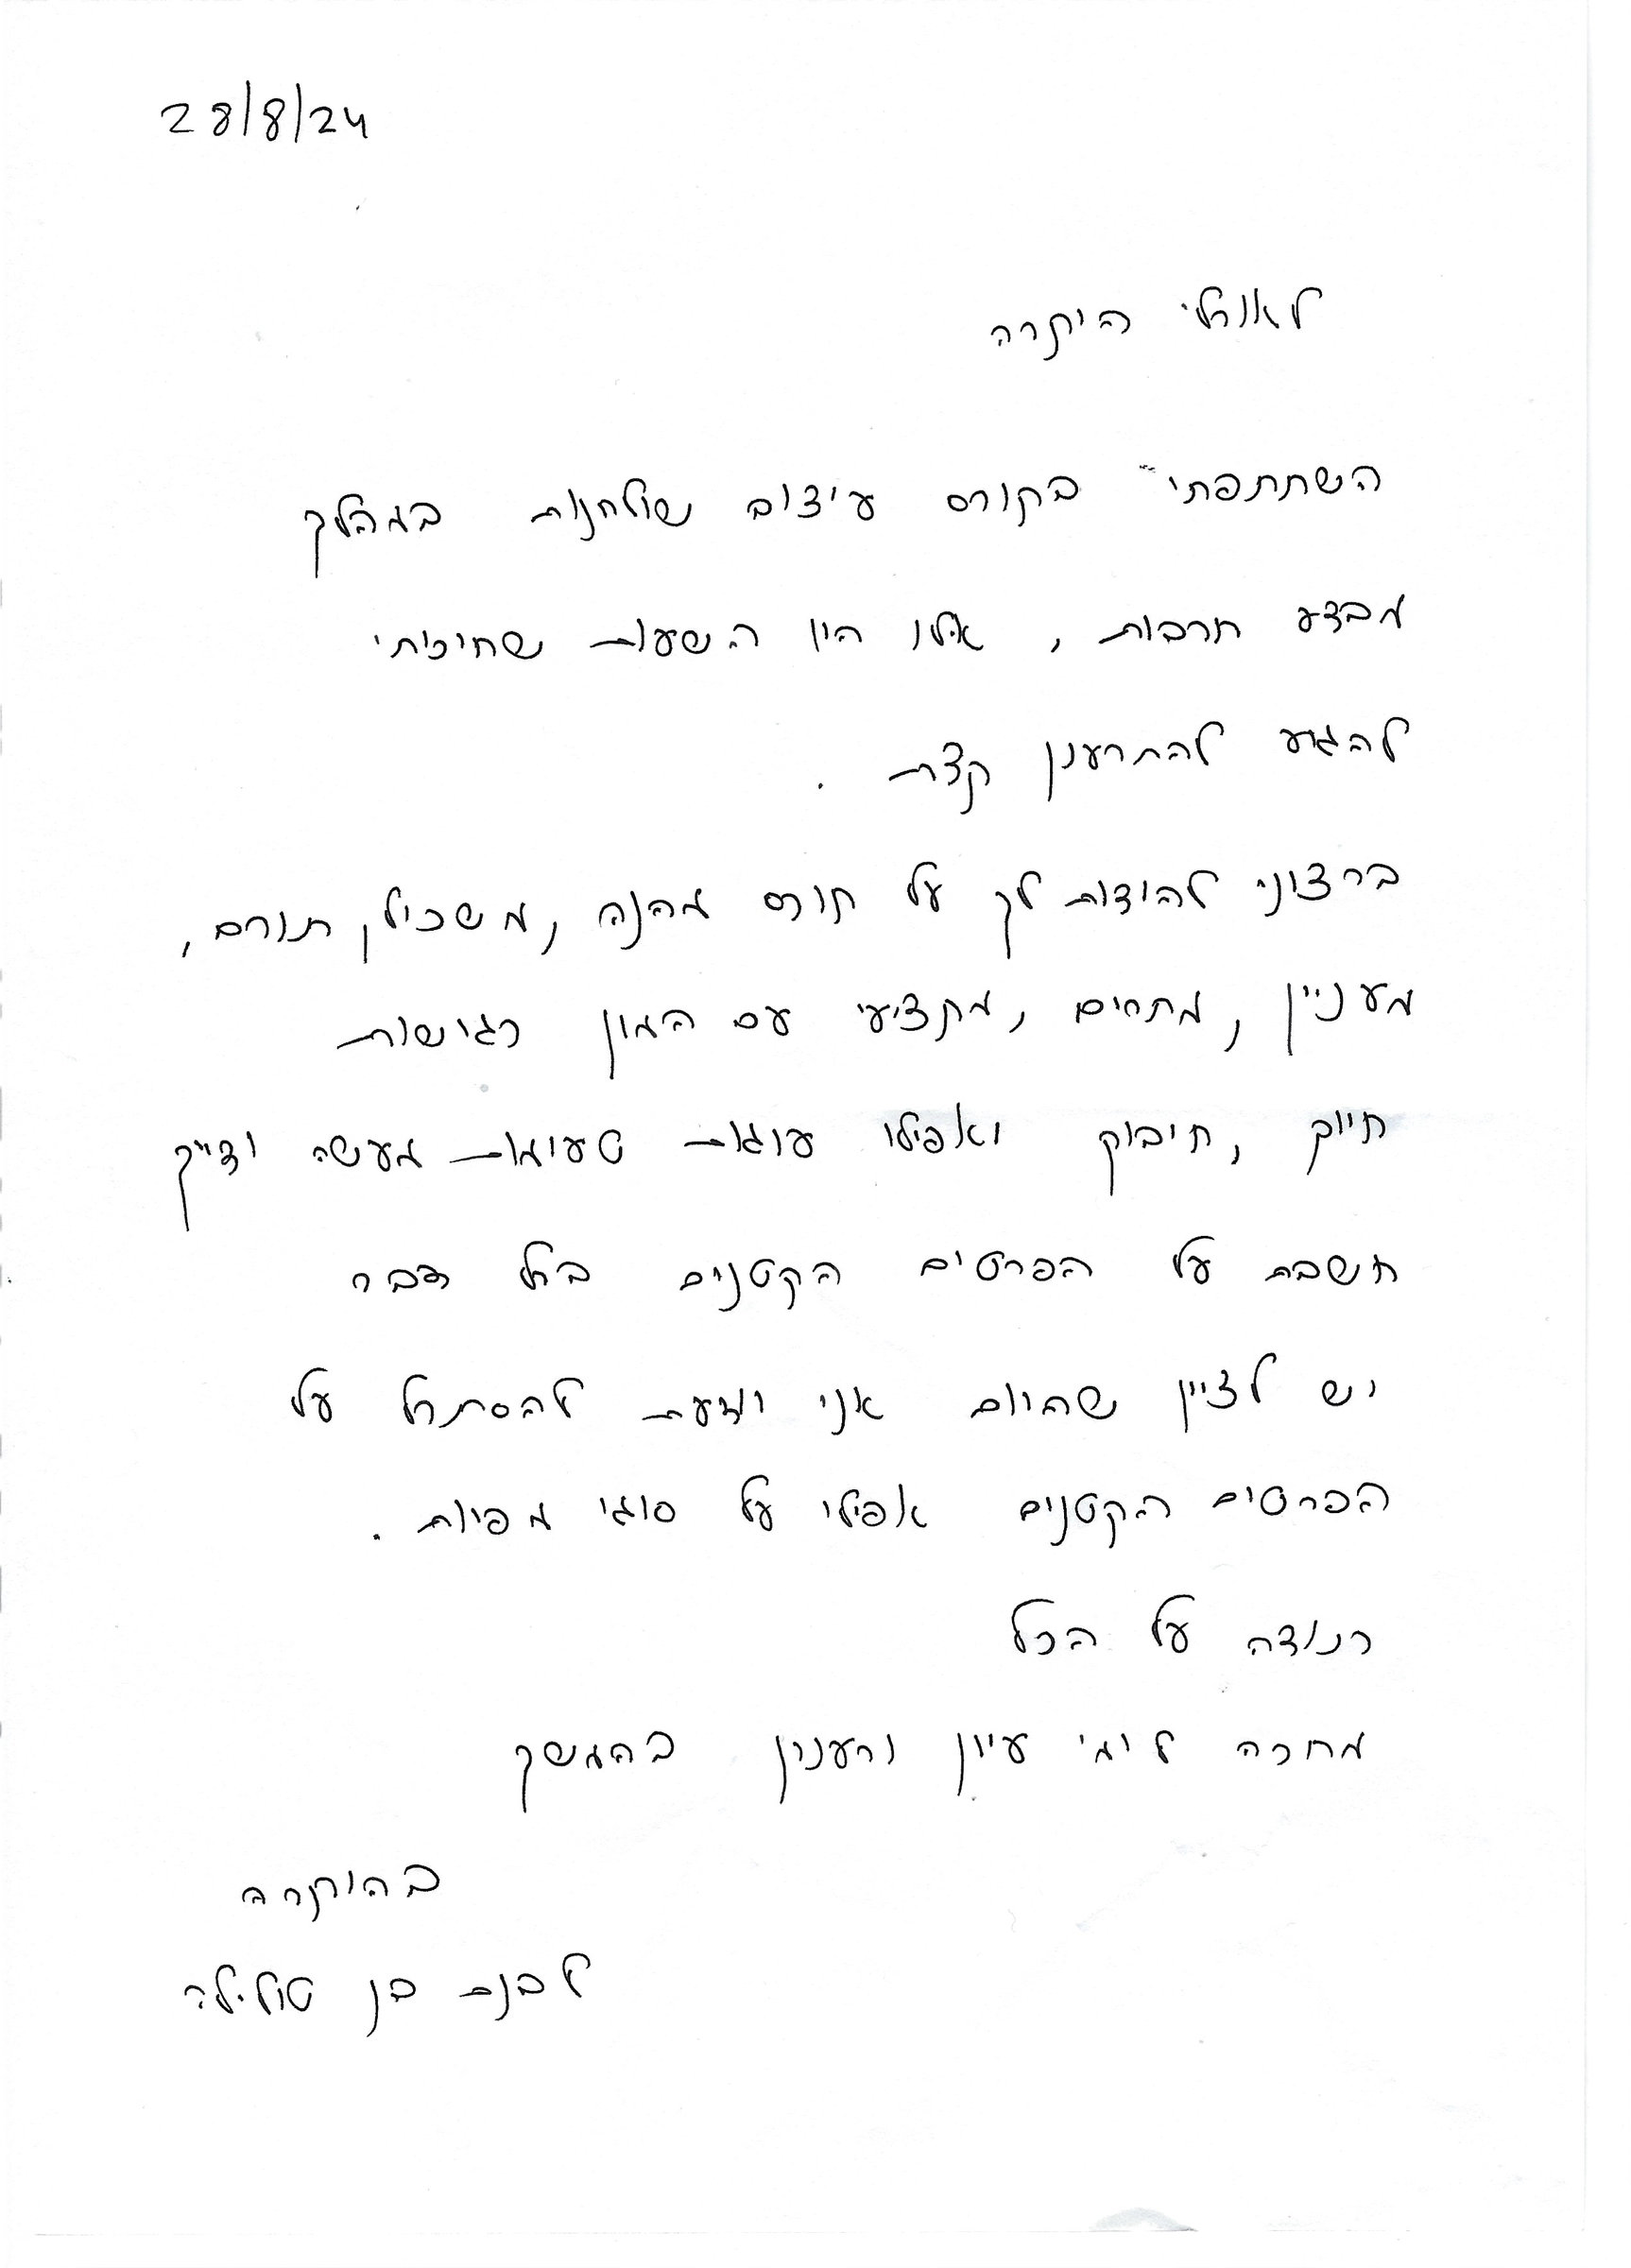 28/8/24
לאורלי היקרה
השתתפתי בקורס עיצוב שולחנות במהלך
מבצע חרבות, אילו היו השעות שחיכיתי
להגיע להתרענן קצת.
ברצוני להודות לך על קורס מהנה, משכיל, תורם,
מעניין, מתחים, מקצועי עם המון רגישות
חיוך, חיבוק ואפילו עוגות טעימות מעשה ידייך
חשבת על הפרטים הקטנים בכל דבר
יש לציין שהיום אני יודעת להסתכל על
הפרטים הקטנים אפילו על סוגי מפיות.
רנודה על הכל
מחכה לימי עיון ורענון בהמשך
בהוקרה
לבנת בן טולילה